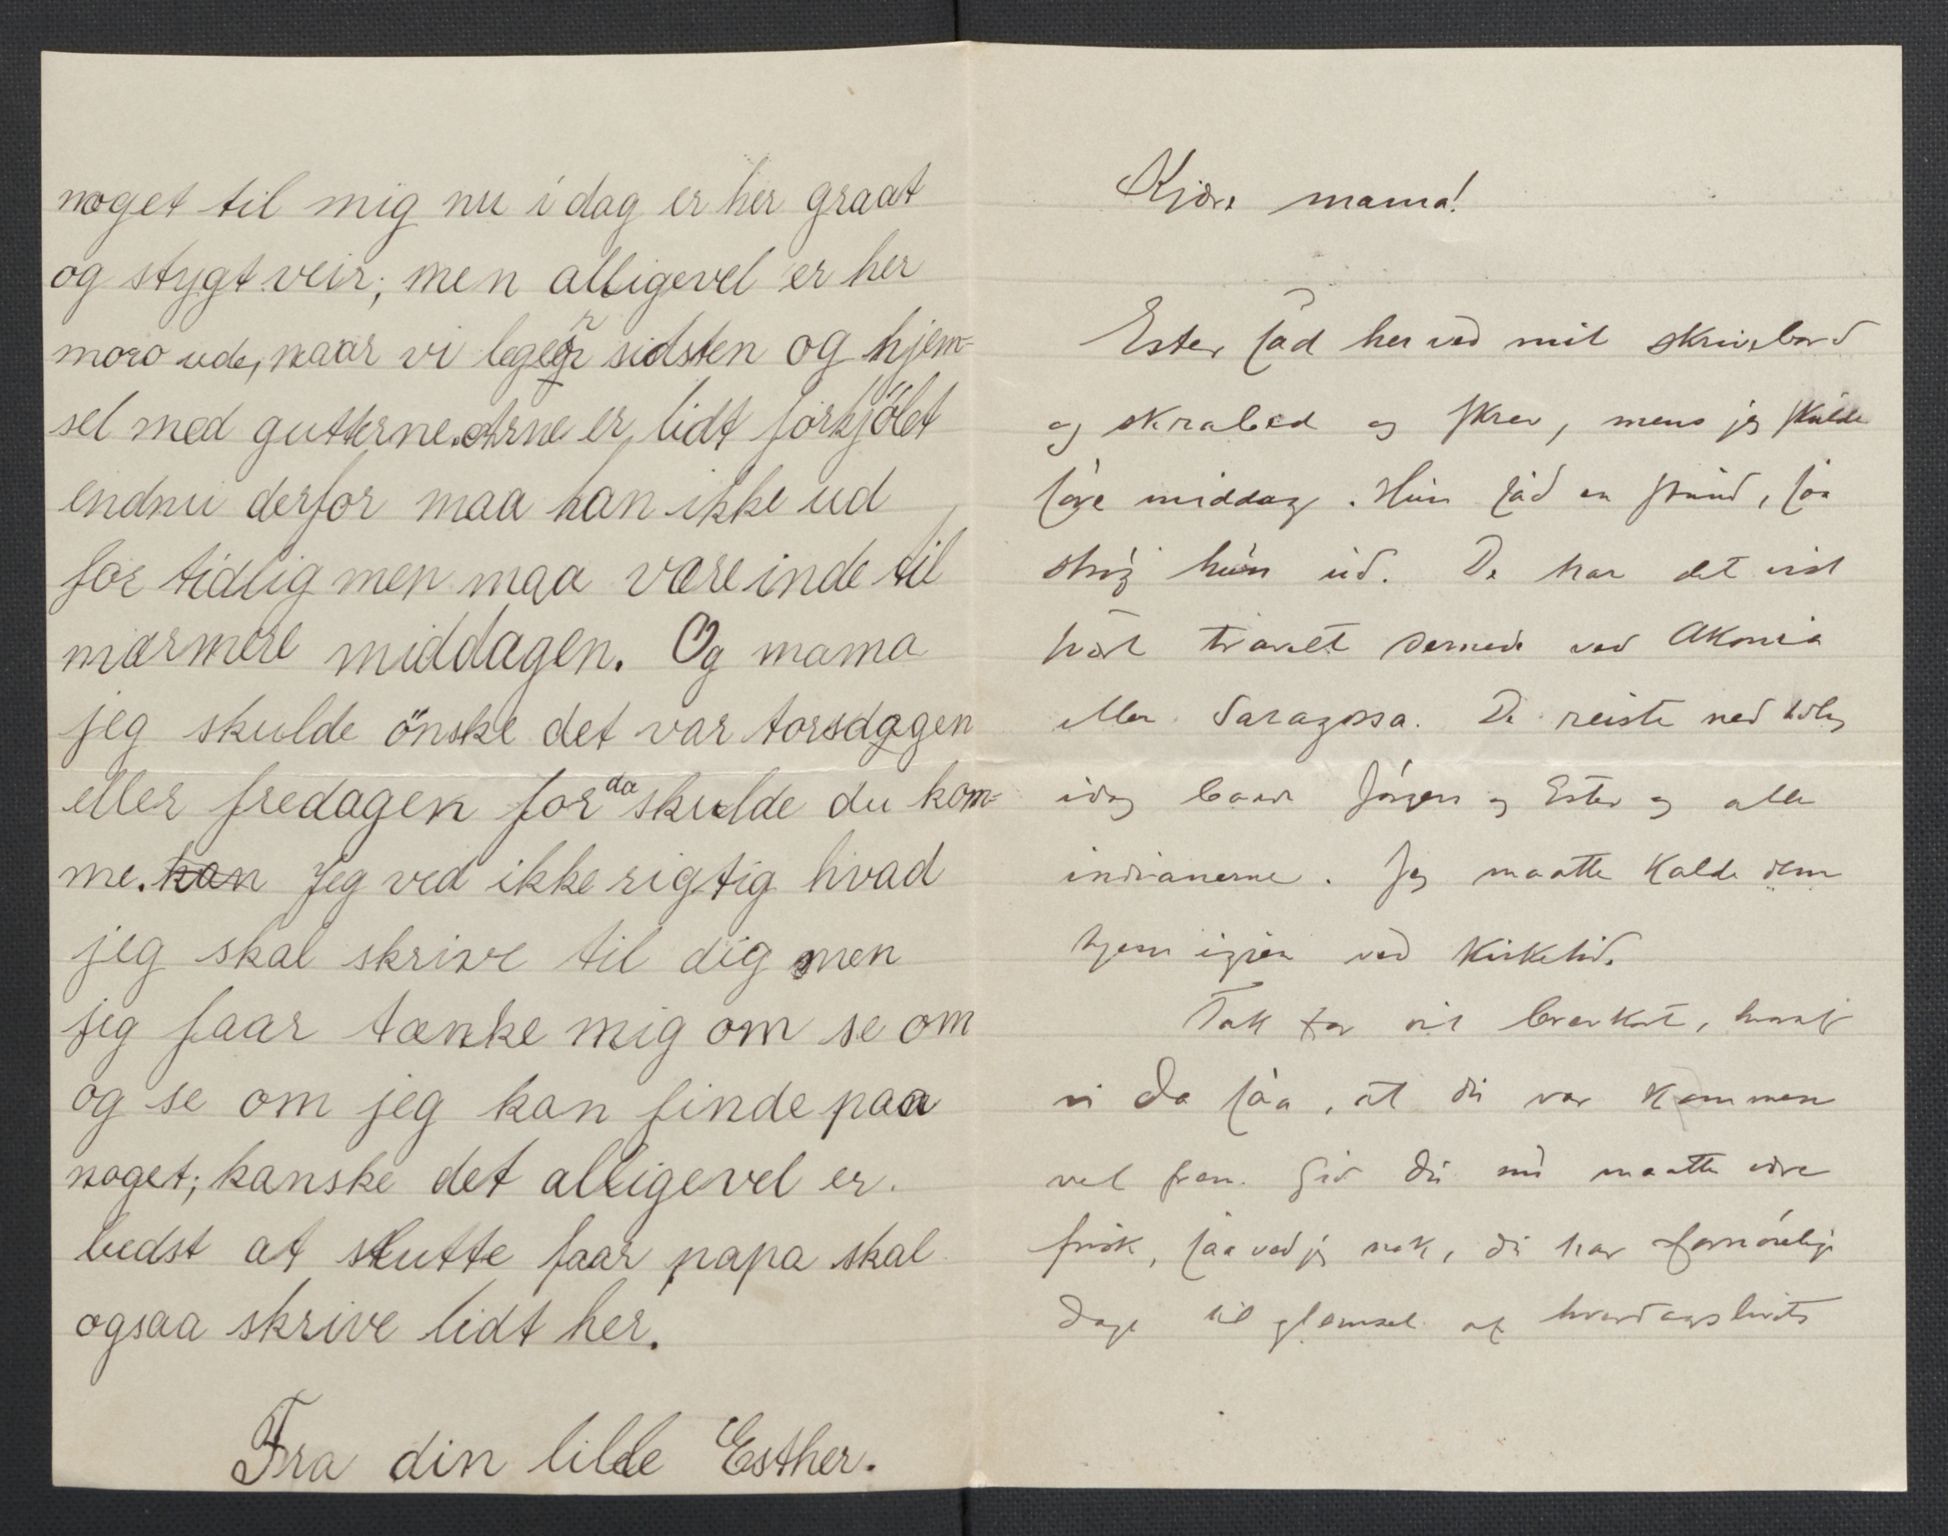 noget til mig nu i dag er her graat
og stygt veir; men alligevel er her
moro ude, naar vi leger sidsten og hjem-
sel med gutterne. Arne er lidt forkjölet
endnu derfor maa han ikke ud
for tidlig men maa være inde til
nærmere middagen. Og mama
jeg skulde önske det var torsdagen
eller fredagen for da skulde du kom-
me. han Jeg ved ikke rigtig hvad
jeg skal skrive til dig men
jeg faar tænke mig om se om
og se om jeg kan finde paa
noget; kanske det alligevel er
bedst at slutte faar papa skal
ogsaa skrive lidt her.
Fra din lille Esther.
Kjære mama!
Ester sad her ved mit skrivebord
og skrabed og skrev, mens jeg skulde
sove middag. Hun sad en stund, saa
strøg hun ud. De har det vist
svært travelt dernede ved
eller Saragossa. De reiste ned
idag baade Jørgen og Ester og alle
indianerne. Jeg maatte kalde dem
hjem igjen ved kirketid.
Tak for dit brevkort, hvoraf
vi da saa, at du var kommen
vel frem. Gid du nu maatte være
frisk, saa ved jeg nok, du har fornøielige
dage til glemsel af hverdagslivets